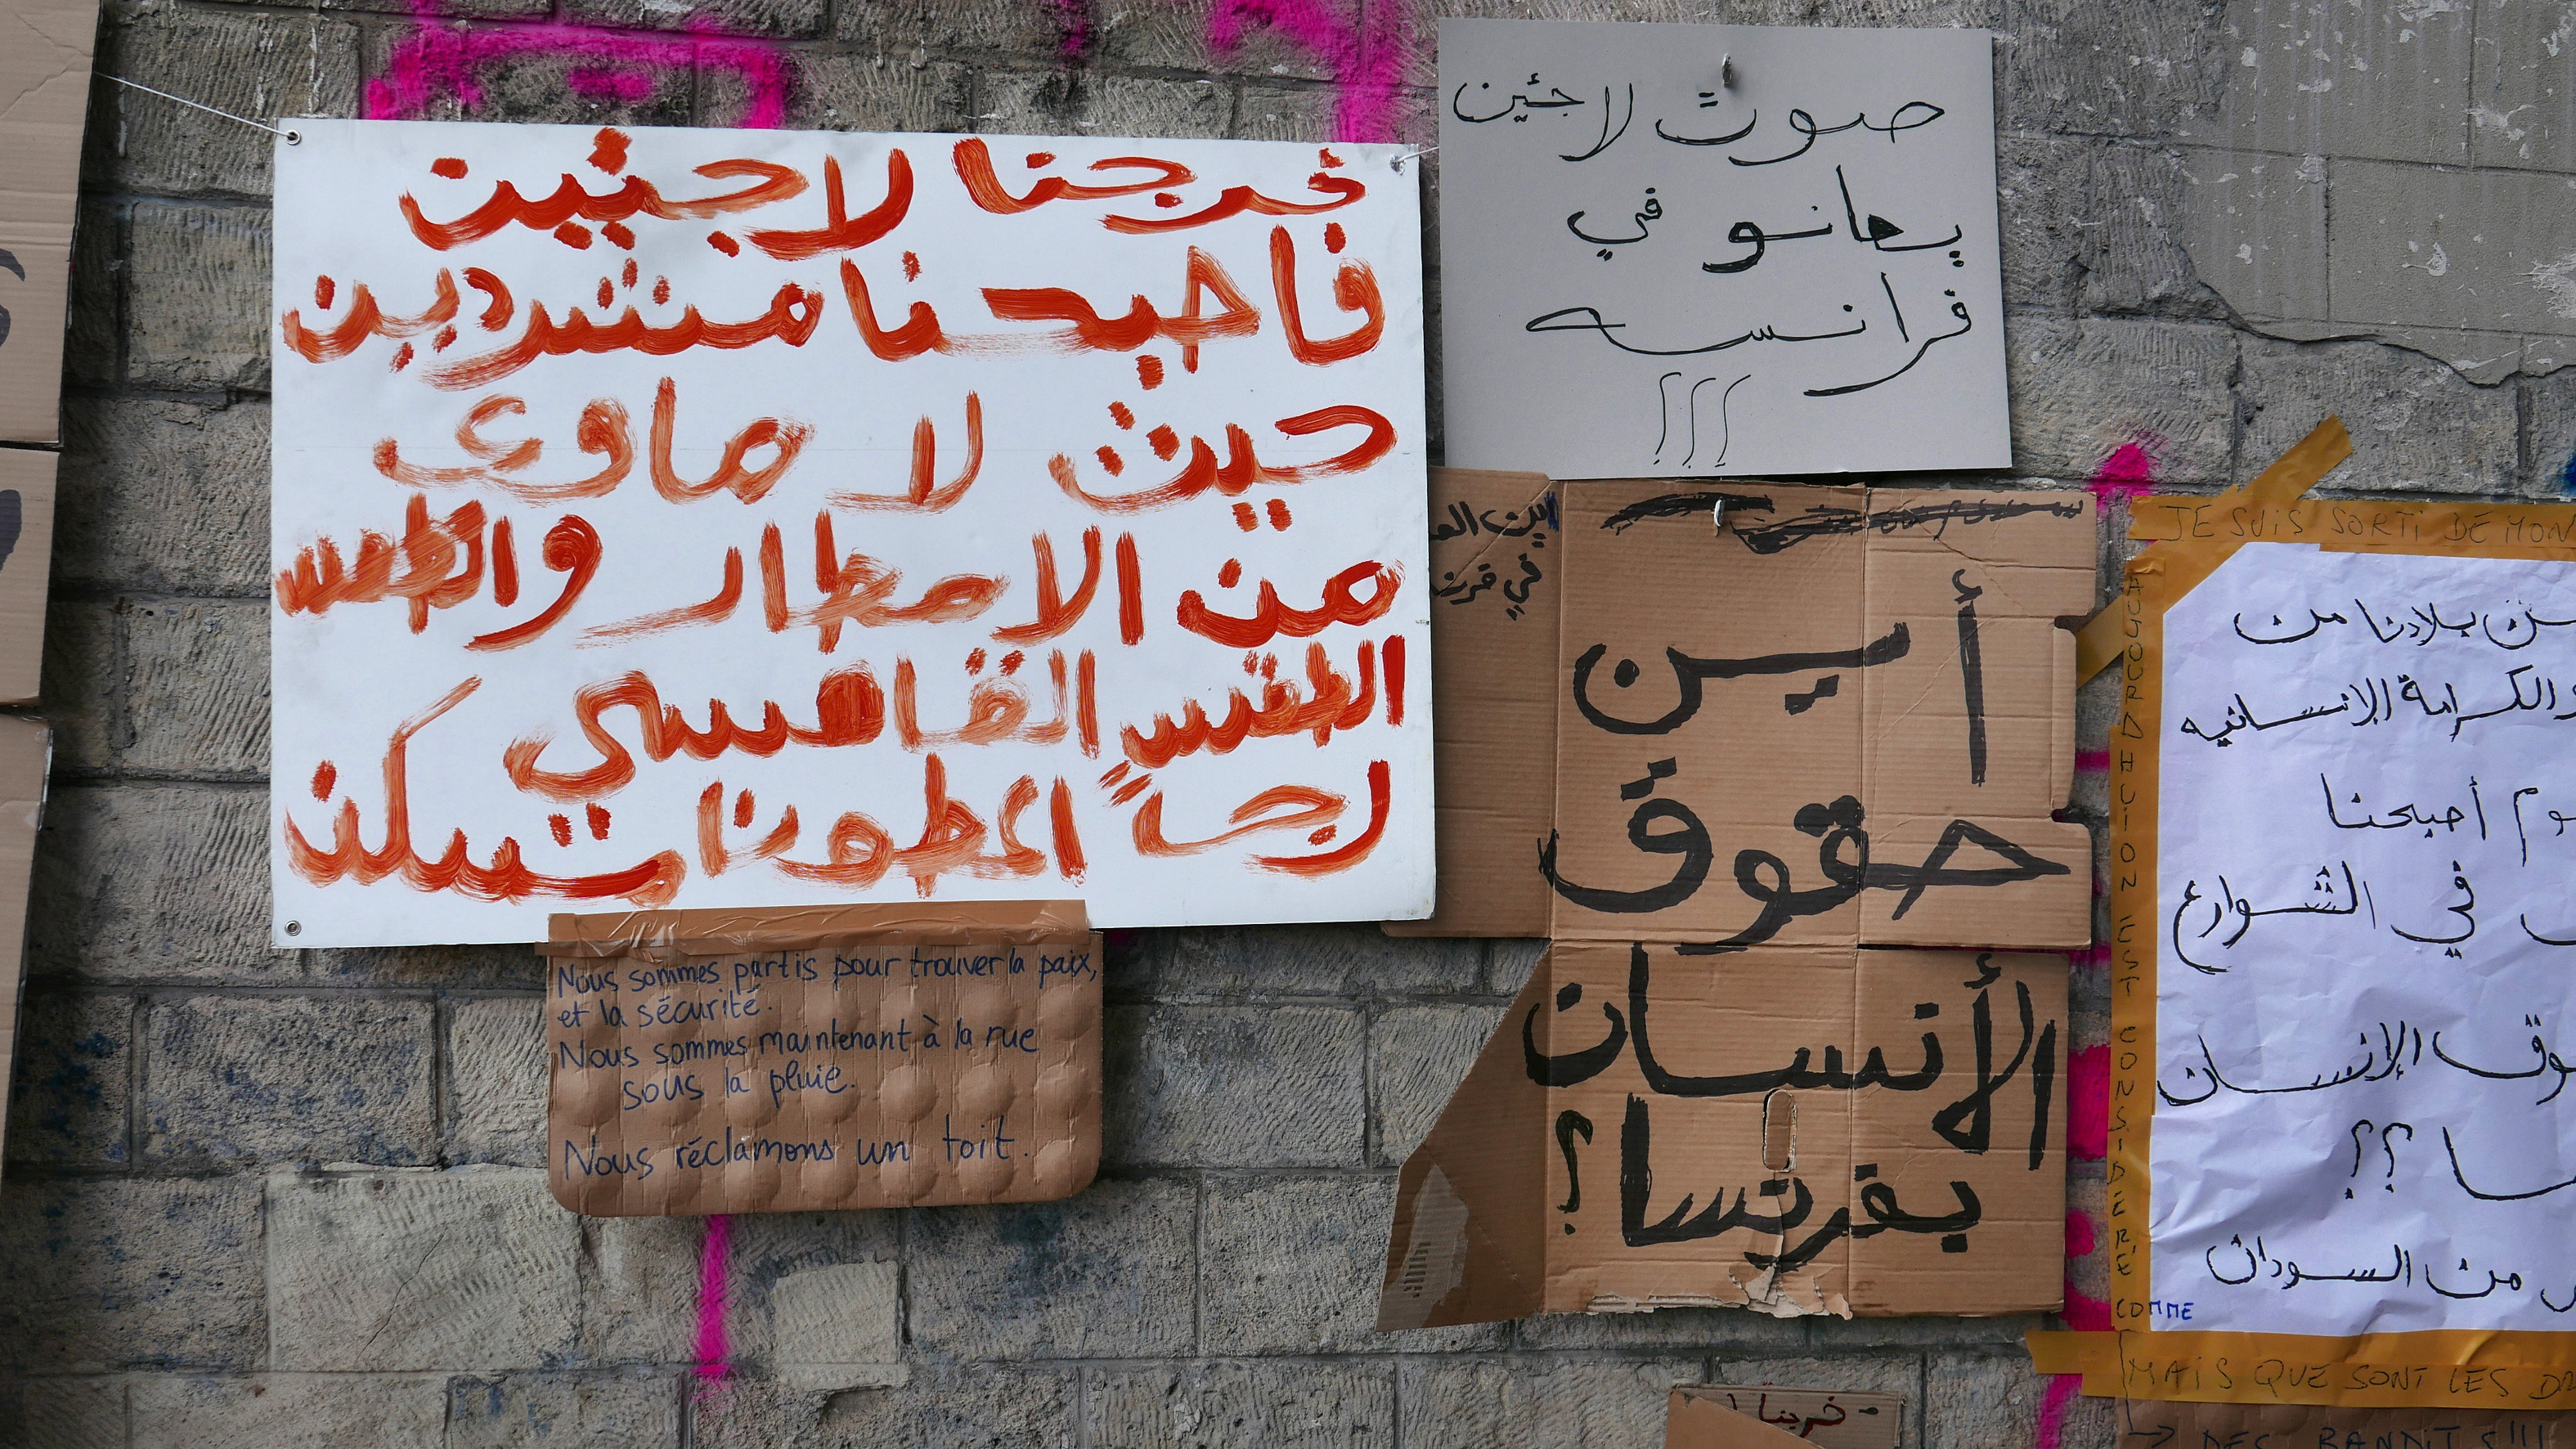 خرجنا لاجئين
فاصبحنا متشردين
حيث لا ماوى
من الامطار والطس
الطقس القاسي
اعطونا مسكن
Nous sommes partis pour trouver la paix,
et la sécurité.
Nous sommes maintenant à la rue
sous la pluie.
Nous réclamons un toit.
صوت لاجئين
يعانو في
فرانسه
؟؟؟
اين
في
أين
حقوق
الأنسان
بفرنسا؟
JE SUIS SORTI DE MON
AUJOURD'HUI ON EST CONSIDÉRÉ COMME
بلادنا من
الكرامة الإنسانيه
أصبحنا
في الشوارع
الإنسان
؟؟
من السودان
MAIS QUE SONT LES
→ DES BANDITS!!!